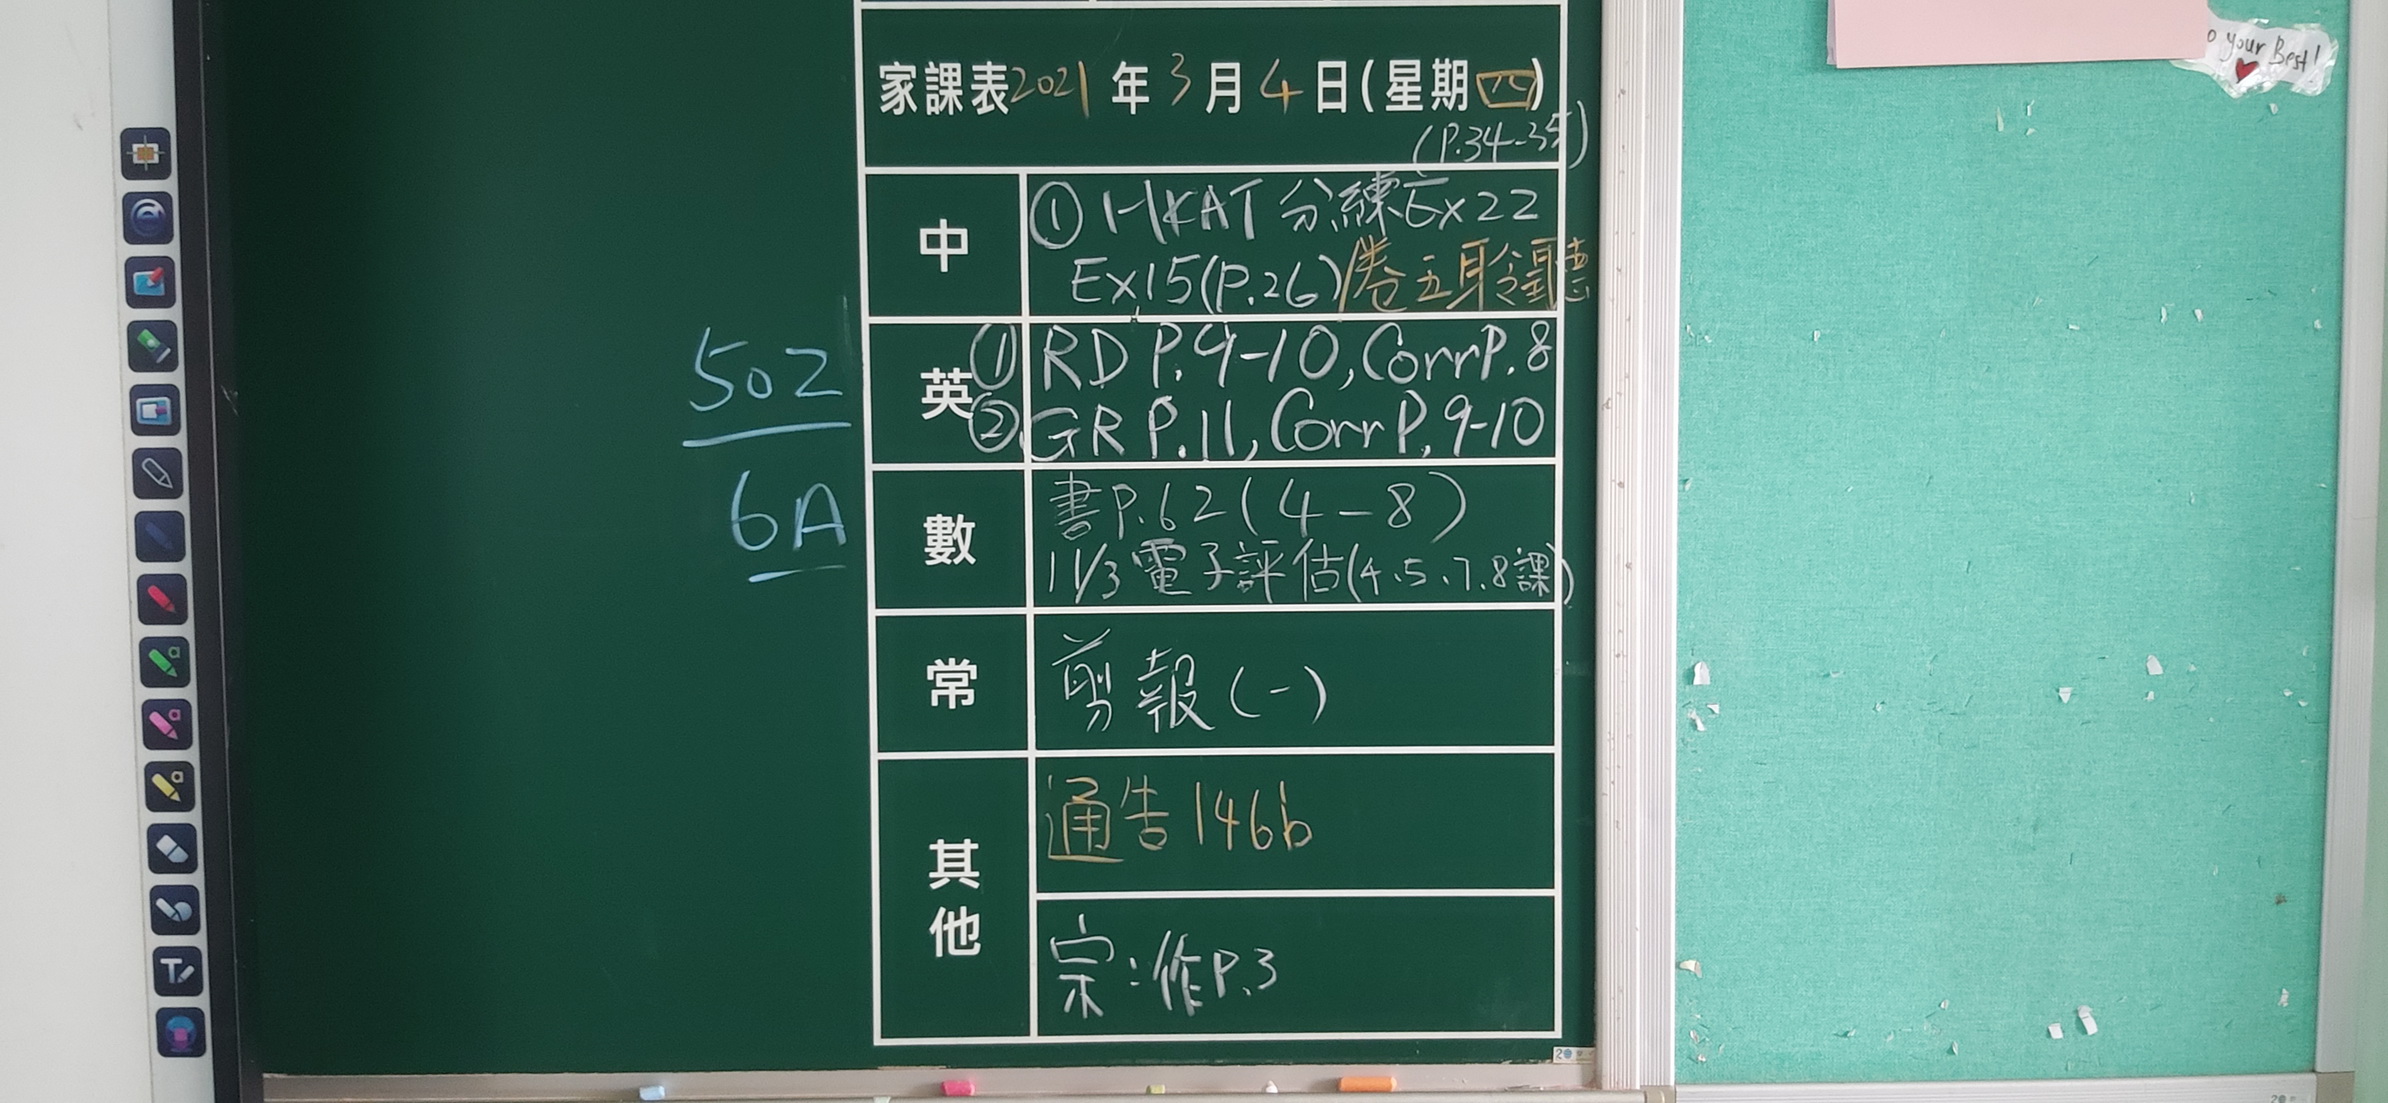 家課表2021年3月4日(星期四)
(P.34-35)
中
① HKAT分練 Ex22
Ex15(P.26)/卷五聆聽
502
6A
英
① RD P.9-10, Corr P.8
② GR P.11, Corr P.9-10
數
書P.62(4-8)
11/3 電子評估(4、5、7、8課)
常
剪報(一)
其他
通告146b
宗:作P.3
o your Best!